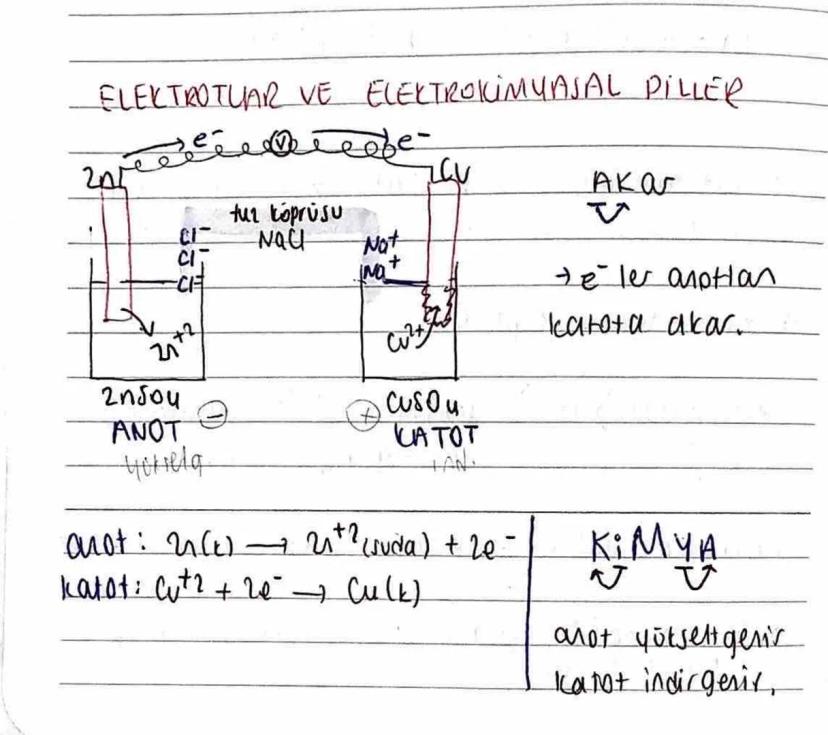 ELEKTROTLAR VE ELEKTROKİMYASAL PİLLER
e⁻ V e⁻
Zn
Cu
AKar
tuz köprüsü
NaCl
Cl⁻
Cl⁻
Cl⁻
Na⁺
Na⁺
→ e⁻ ler anottan
katota akar.
Zn⁺²
Cu²⁺
ZnSO₄
ANOT
⊖
yükseltg
⊕
CuSO₄
KATOT
ind.
anot: Zn(k) → Zn⁺²(suda) + 2e⁻
katot: Cu⁺² + 2e⁻ → Cu(k)
KiMYA
anot yükseltgenir
katot indirgenir.